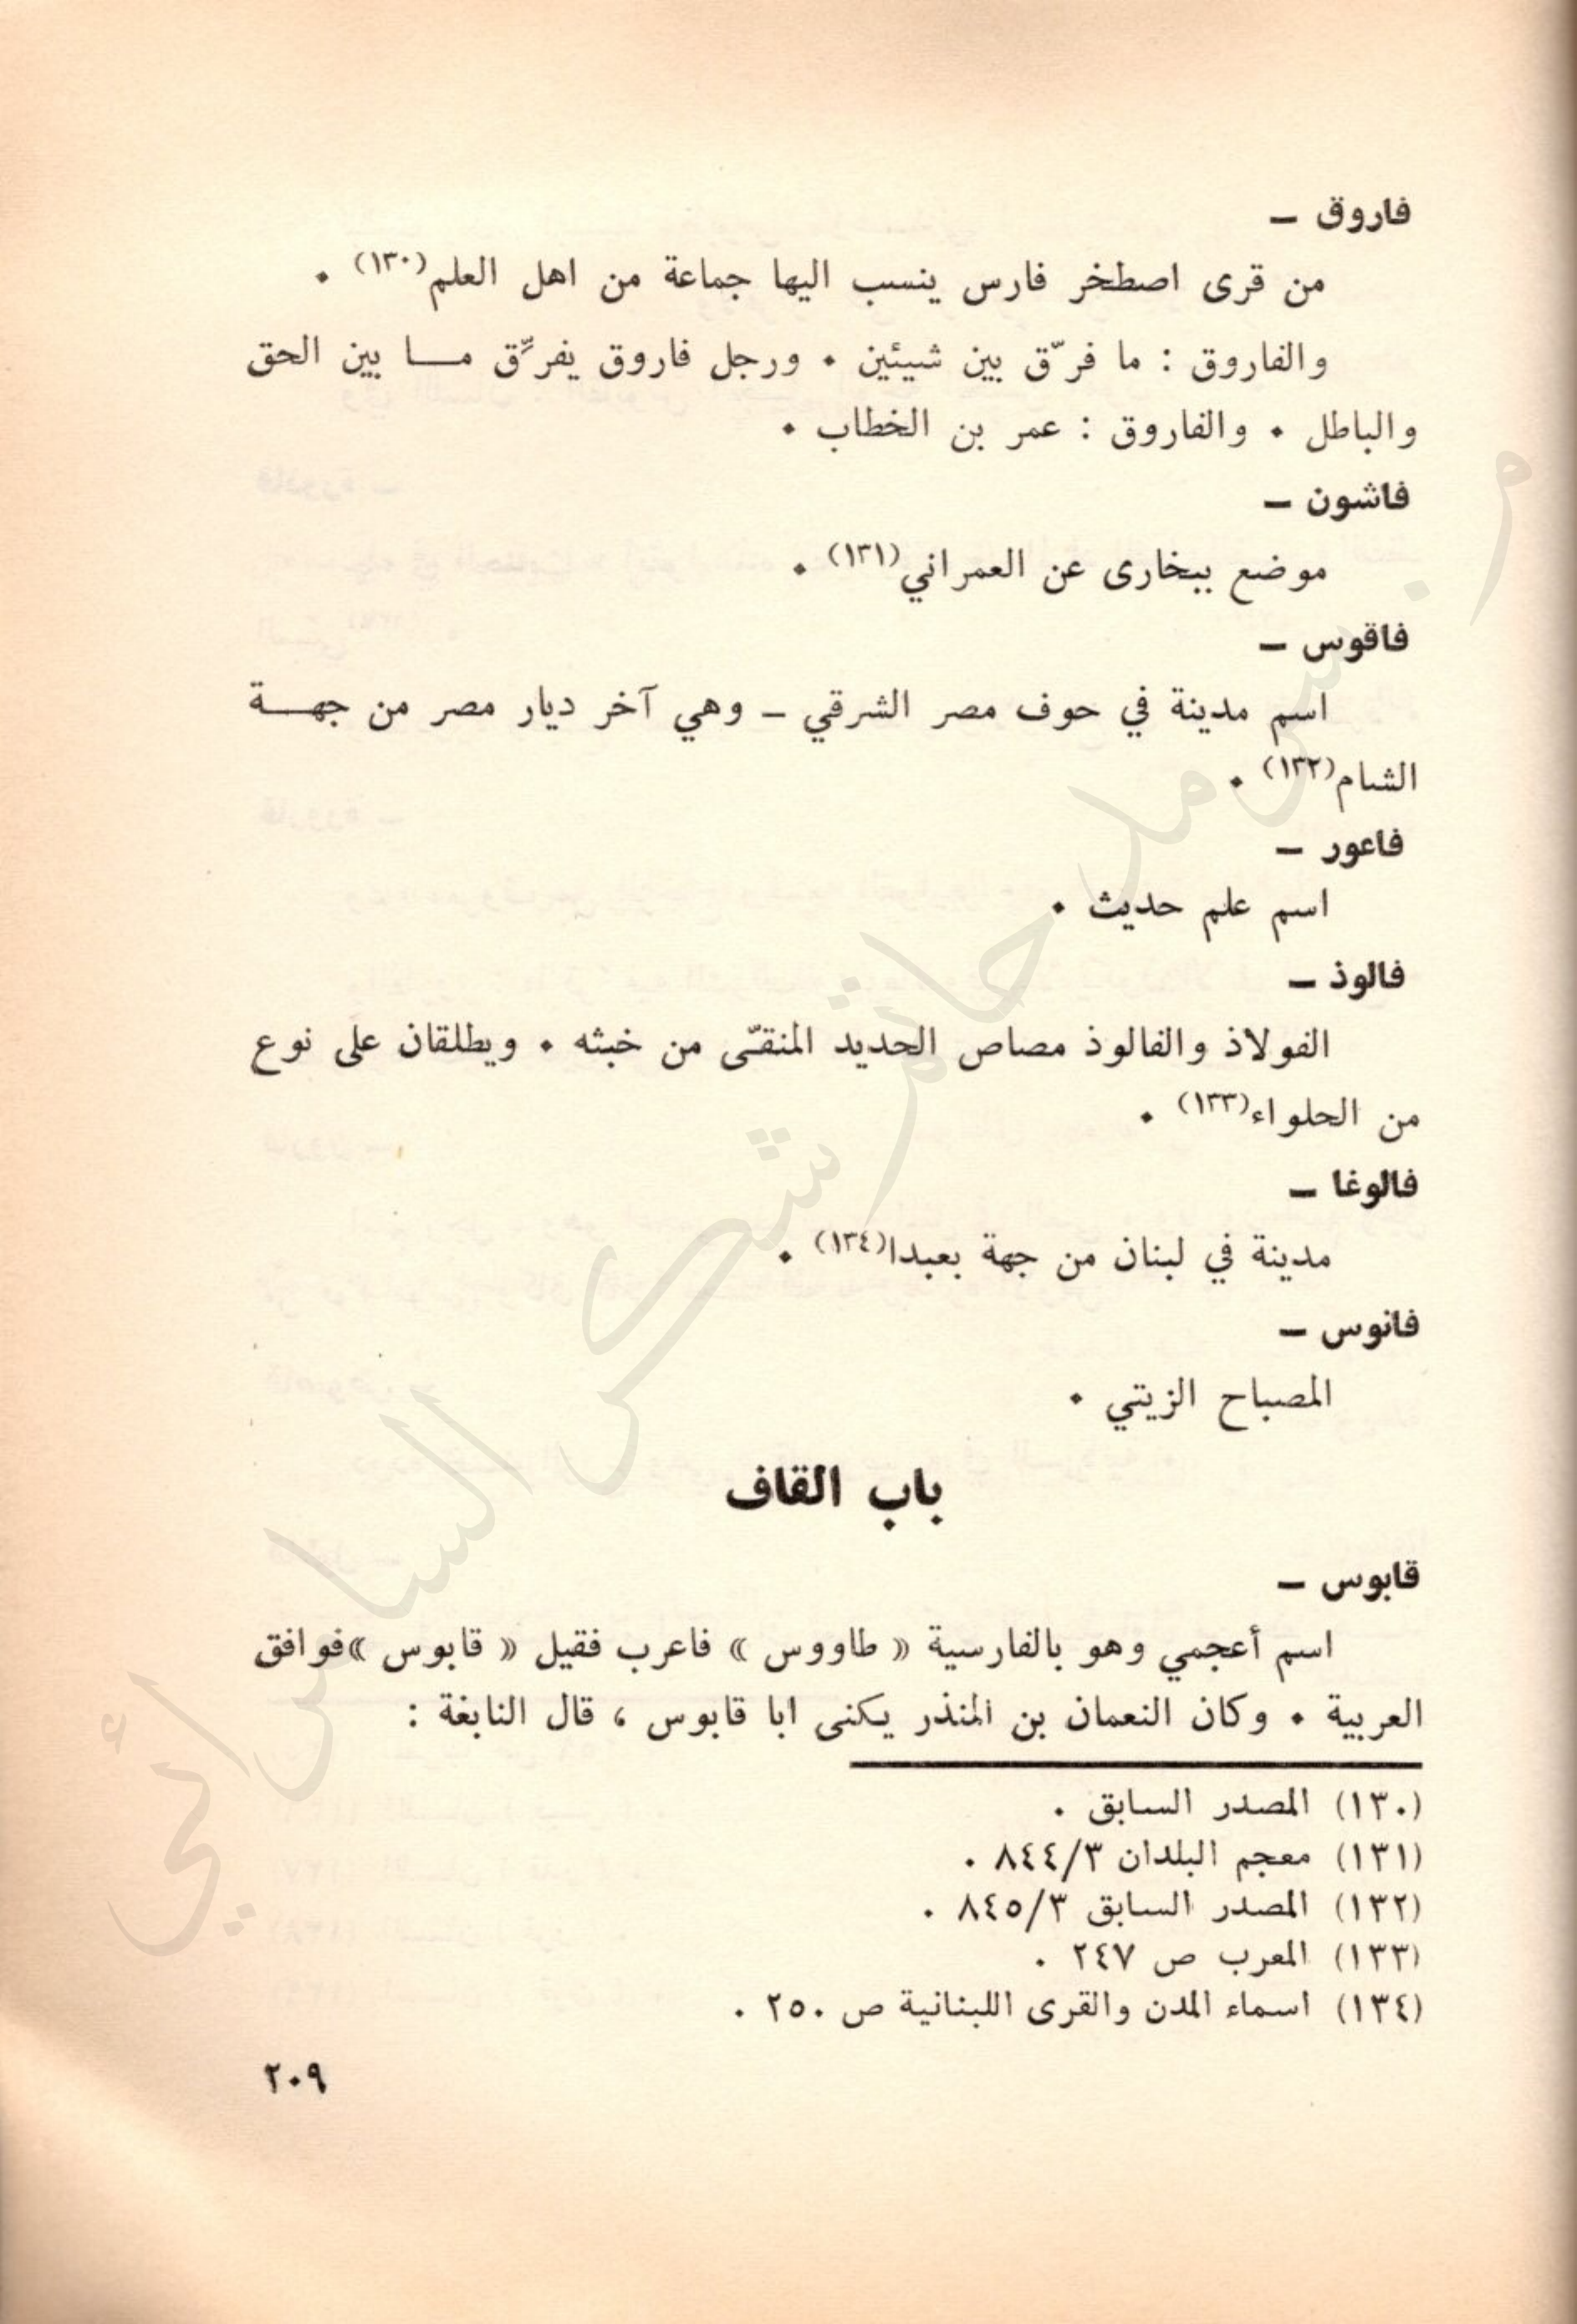 فاروق –
من قرى اصطخر فارس ينسب اليها جماعة من اهل العلم(١٣٠) .
والفاروق : ما فرّق بين شيئين . ورجل فاروق يفرّق مـا بين الحق
والباطل . والفاروق : عمر بن الخطاب .
فاشون –
موضع ببخارى عن العمراني(١٣١) .
فاقوس –
اسم مدينة في حوف مصر الشرقي – وهي آخر ديار مصر من جهـة
الشام(١٣٢) .
فاعور –
اسم علم حديث .
فالوذ –
الفولاذ والفالوذ مصاص الحديد المنقّى من خبثه . ويطلقان على نوع
من الحلواء(١٣٣) .
فالوغا –
مدينة في لبنان من جهة بعبدا(١٣٤) .
فانوس –
المصباح الزيتي .
باب القاف
قابوس –
اسم أعجمي وهو بالفارسية « طاووس » فاعرب فقيل « قابوس »فوافق
العربية . وكان النعمان بن المنذر يكنى ابا قابوس ، قال النابغة :
(١٣٠) المصدر السابق .
(١٣١) معجم البلدان ٨٤٤/٣ .
(١٣٢) المصدر السابق ٨٤٥/٣ .
(١٣٣) المعرب ص ٢٤٧ .
(١٣٤) اسماء المدن والقرى اللبنانية ص ٢٥٠ .
٢٠٩